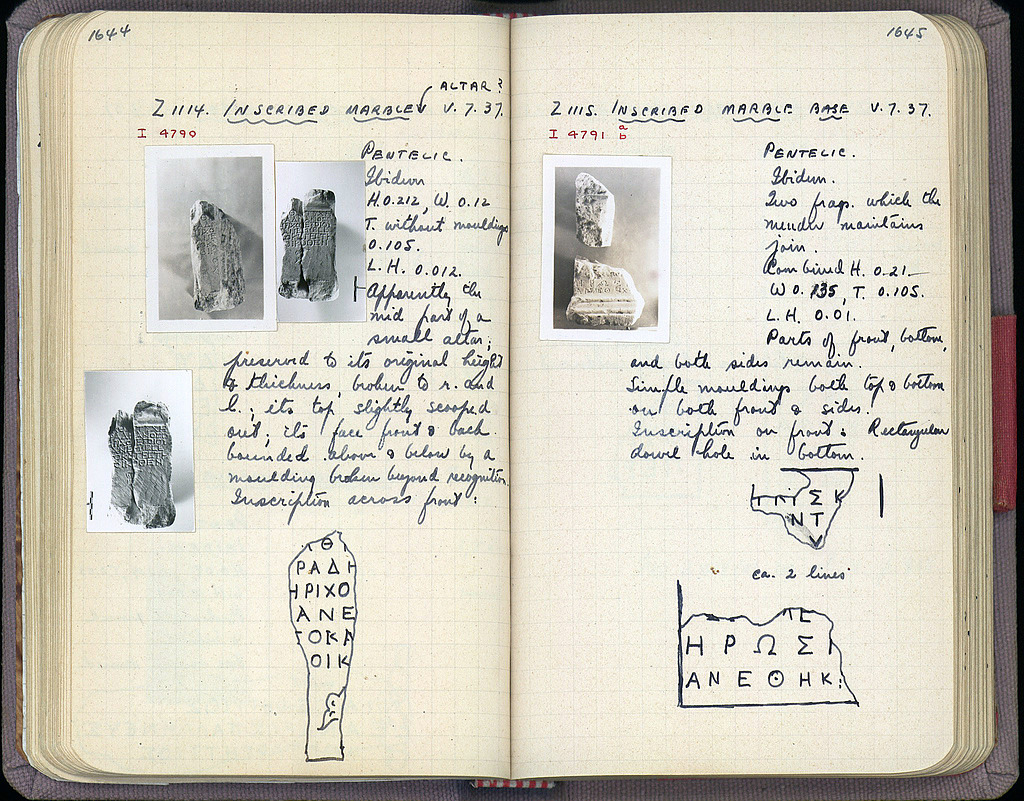 1644
ALTAR?
Z 1114. INSCRIBED MARBLE V.7.37.
I 4790
PENTELIC.
Ibidem
H 0.212, W. 0.12
T. without mouldings
0.105.
L.H. 0.012.
Apparently the
mid part of a
small altar;
preserved to its original height
& thickness, broken to r. and
l.; its top slightly scooped
out; its face front & back
bounded above & below by a
moulding broken beyond recognition.
Inscription across front:
Θ
ΡΑΔΗ
ΗΡΙΧΟ
ΑΝΕ
ΤΟΚΑ
ΟΙΚ
1645
Z 1115. INSCRIBED MARBLE BASE V.7.37.
I 4791 a
b
PENTELIC.
Ibidem.
Two frags. which the
mender maintains
join.
Combined H. 0.21—
W 0.135, T. 0.105.
L.H. 0.01.
Parts of front, bottom,
and both sides remain.
Simple mouldings both top & bottom
on both front & sides.
Inscription on front: Rectangular
dowel hole in bottom.
ΣΚ
ΝΤ
ca. 2 lines
ΗΡΩΣΙ
ΑΝΕΘΗΚ: